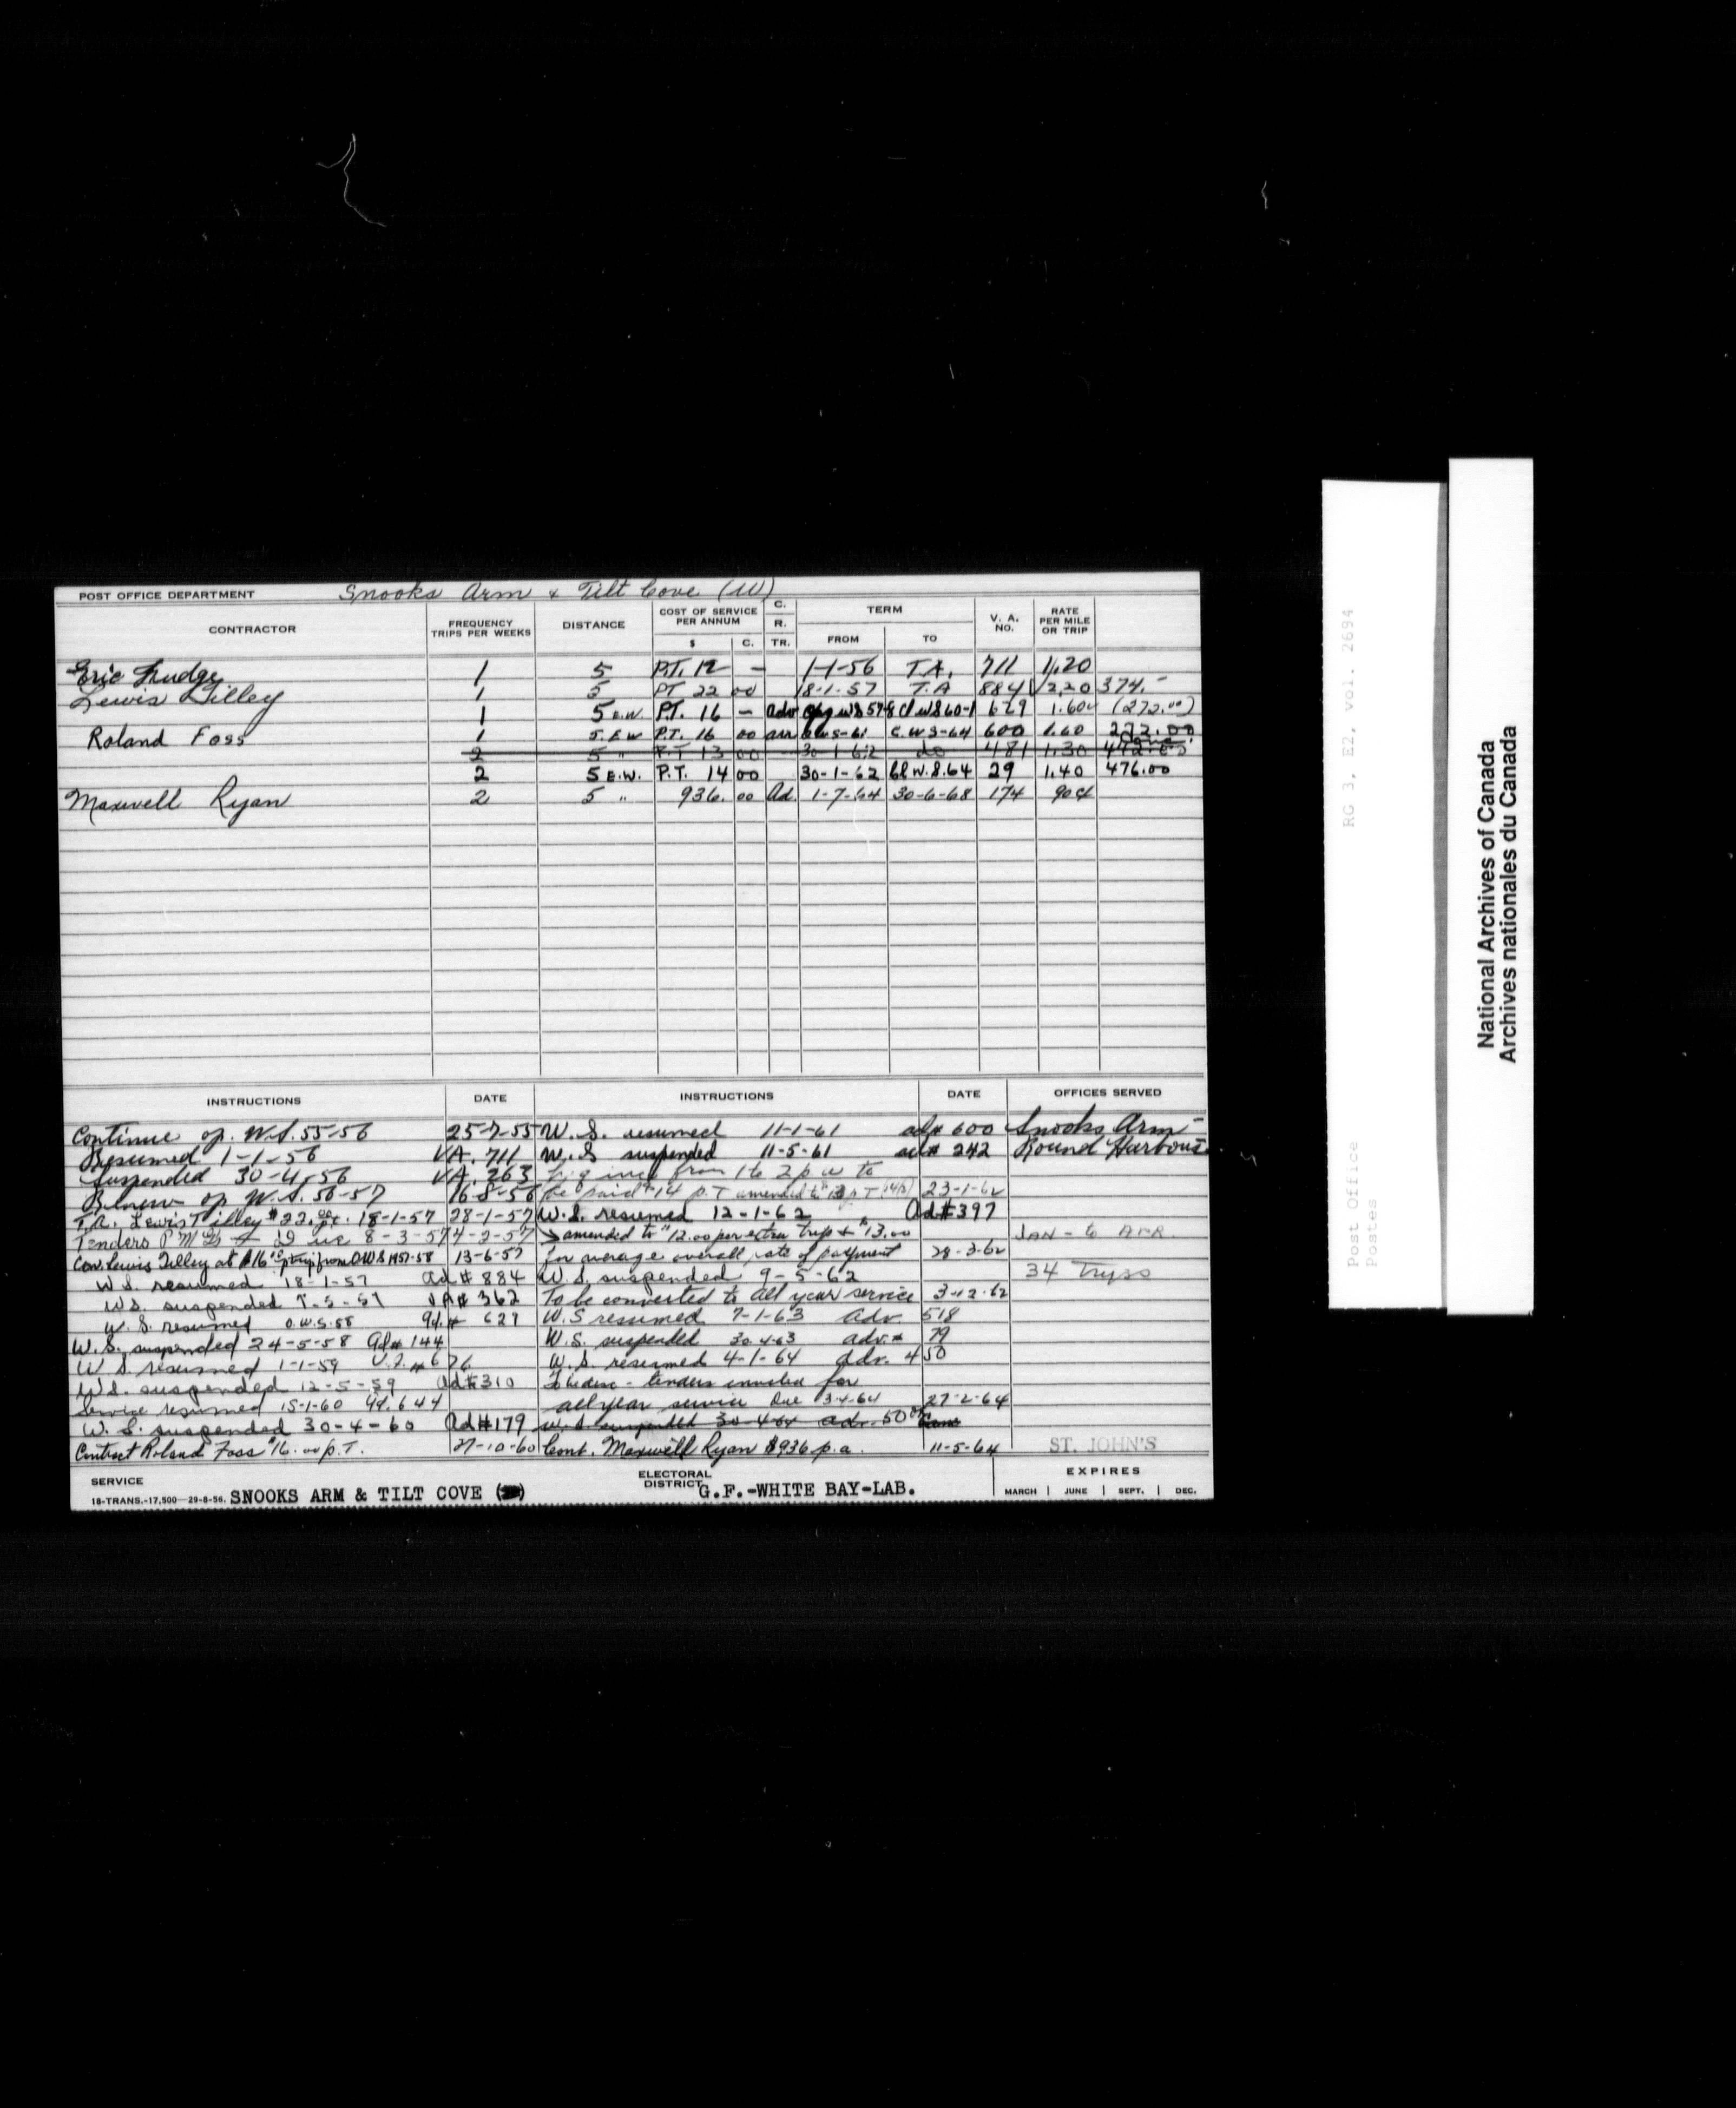 POST OFFICE DEPARTMENT Snooks Arm & Tilt Cove (W)
CONTRACTOR FREQUENCY TRIPS PER WEEKS DISTANCE COST OF SERVICE PER ANNUM $ C. C. R. TR. TERM FROM TO V. A. NO. RATE PER MILE OR TRIP
Eric 1 5 P.T. 12 — 1-1-56 T.A. 711 1.20
Lewis Tilley 1 5 PT 22 00 18-1-57 T.A 884 2.20 374.-
1 5 E.W. P.T. 16 — Adv 629 1.60 (272.00)
Roland Foss 1 5 E.W P.T. 16 00 C.W.S-64 600 1.60 272.00
2 5 " P.T 13 00 30-1-62 do 481 1.30
2 5 E.W. P.T. 14 00 30-1-62 Cl W.S.64 29 1.40 476.00
Maxwell Ryan 2 5 " 936. 00 Ad. 1-7-64 30-6-68 174 90¢
INSTRUCTIONS DATE INSTRUCTIONS DATE OFFICES SERVED
Continue op. W.S. 55-56 25-7-55 W. S. resumed 11-1-61 ad# 600 Snooks Arm
Resumed 1-1-56 VA. 711 W. S suspended 11-5-61 ad# 242 Round Harbour
Suspended 30-4-56 VA. 263 from 1 to 2 p w to
Renew op. W.S. 56-57 16-8-56 be paid $14 p.T amended to 23-1-62
T.A. Lewis Tilley $22.00 p.t. 18-1-57 28-1-57 W.S. resumed 12-1-62 Ad#397
Tenders Due 8-3-57 4-2-57 amended to $12.00 per extra trip & $13.00 JAN - to APR
Con. Lewis Tilley at $16.00 p trip from O.W.S 1957-58 13-6-57 for average overall rate of payment 28-3-62
W S. resumed 18-1-57 ad # 884 W.S. suspended 9-5-62 34 Trips
WS. suspended 7-5-57 VA# 362 To be converted to all year service 3-12-62
W. S. resumed O.W.S.58 ad.# 629 W.S resumed 7-1-63 adv. 518
W. S. suspended 24-5-58 Ad# 144 W.S. suspended 30.4.63 adv.# 79
W S. resumed 1-1-59 V.A. # 676 W. S. resumed 4-1-64 adv. 450
W.S. suspended 12-5-59 Ad#310 tenders invited for
Service resumed 15-1-60 644 all year service Due 13-4-64 27-2-64
W. S. suspended 30-4-60 Ad#179 W.S suspended 30-4-64 adv. 50
Contract Roland Foss $16.00 p.T. 27-10-60 Cont. Maxwell Ryan $936 p.a. 11-5-64 ST. JOHN'S
SERVICE SNOOKS ARM & TILT COVE ELECTORAL DISTRICT G.F.-WHITE BAY-LAB. EXPIRES
18-TRANS.-17,500—29-8-56. MARCH JUNE SEPT. DEC.
RG 3, E2, vol. 2694
Post Office
Postes
National Archives of Canada
Archives nationales du Canada